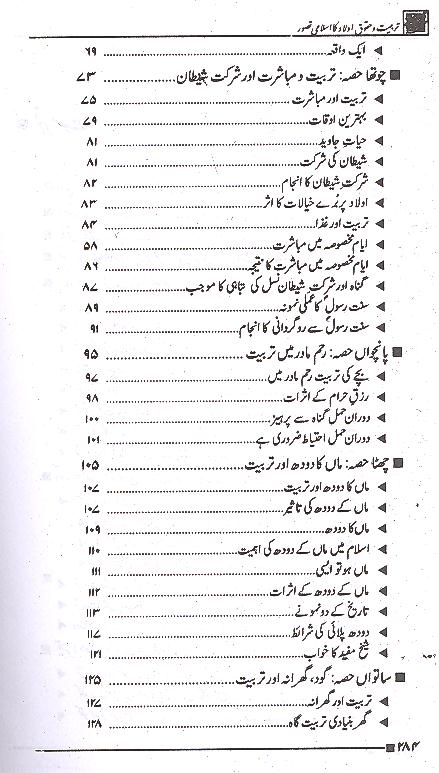 تربیت و حقوقِ اولاد کا اسلامی تصور
◀ ایک واقعہ ۶۹
■ چوتھا حصہ: تربیت و مباشرت اور شرکت شیطان ۷۳
◀ تربیت اور مباشرت ۷۵
◀ بہترین اوقات ۷۹
◀ حیاتِ جاوید ۸۱
◀ شیطان کی شرکت ۸۱
◀ شرکتِ شیطان کا انجام ۸۲
◀ اولاد پر بُرے خیالات کا اثر ۸۳
◀ تربیت اور غذا ۸۴
◀ ایام مخصوصہ میں مباشرت ۵۸
◀ ایام مخصوصہ میں مباشرت کا نتیجہ ۸۶
◀ گناہ اور شرکتِ شیطان نسل کی تباہی کا موجب ۸۷
◀ سنت رسولؐ کا عملی نمونہ ۸۹
◀ سنت رسولؐ سے روگردانی کا انجام ۹۱
■ پانچواں حصہ: رحم مادر میں تربیت ۹۵
◀ بچے کی تربیت رحم مادر میں ۹۷
◀ رزقِ حرام کے اثرات ۹۸
◀ دوران حمل گناہ سے پرہیز ۱۰۰
◀ دوران حمل احتیاط ضروری ہے ۱۰۱
■ چھٹا حصہ: ماں کا دودھ اور تربیت ۱۰۵
◀ ماں کا دودھ اور تربیت ۱۰۷
◀ ماں کے دودھ کی تاثیر ۱۰۷
◀ ماں کا دودھ ۱۰۹
◀ اسلام میں ماں کے دودھ کی اہمیت ۱۱۰
◀ ماں ہو تو ایسی ۱۱۱
◀ ماں کے دودھ کے اثرات ۱۱۲
◀ تاریخ کے دو نمونے ۱۱۳
◀ دودھ پلائی کی شرائط ۱۱۷
◀ شیخ مفید کا خواب ۱۲۱
■ ساتواں حصہ: گود، گھرانہ اور تربیت ۱۲۵
◀ تربیت اور گھرانہ ۱۲۷
◀ گھر بنیادی تربیت گاہ ۱۲۸
۲۸۴